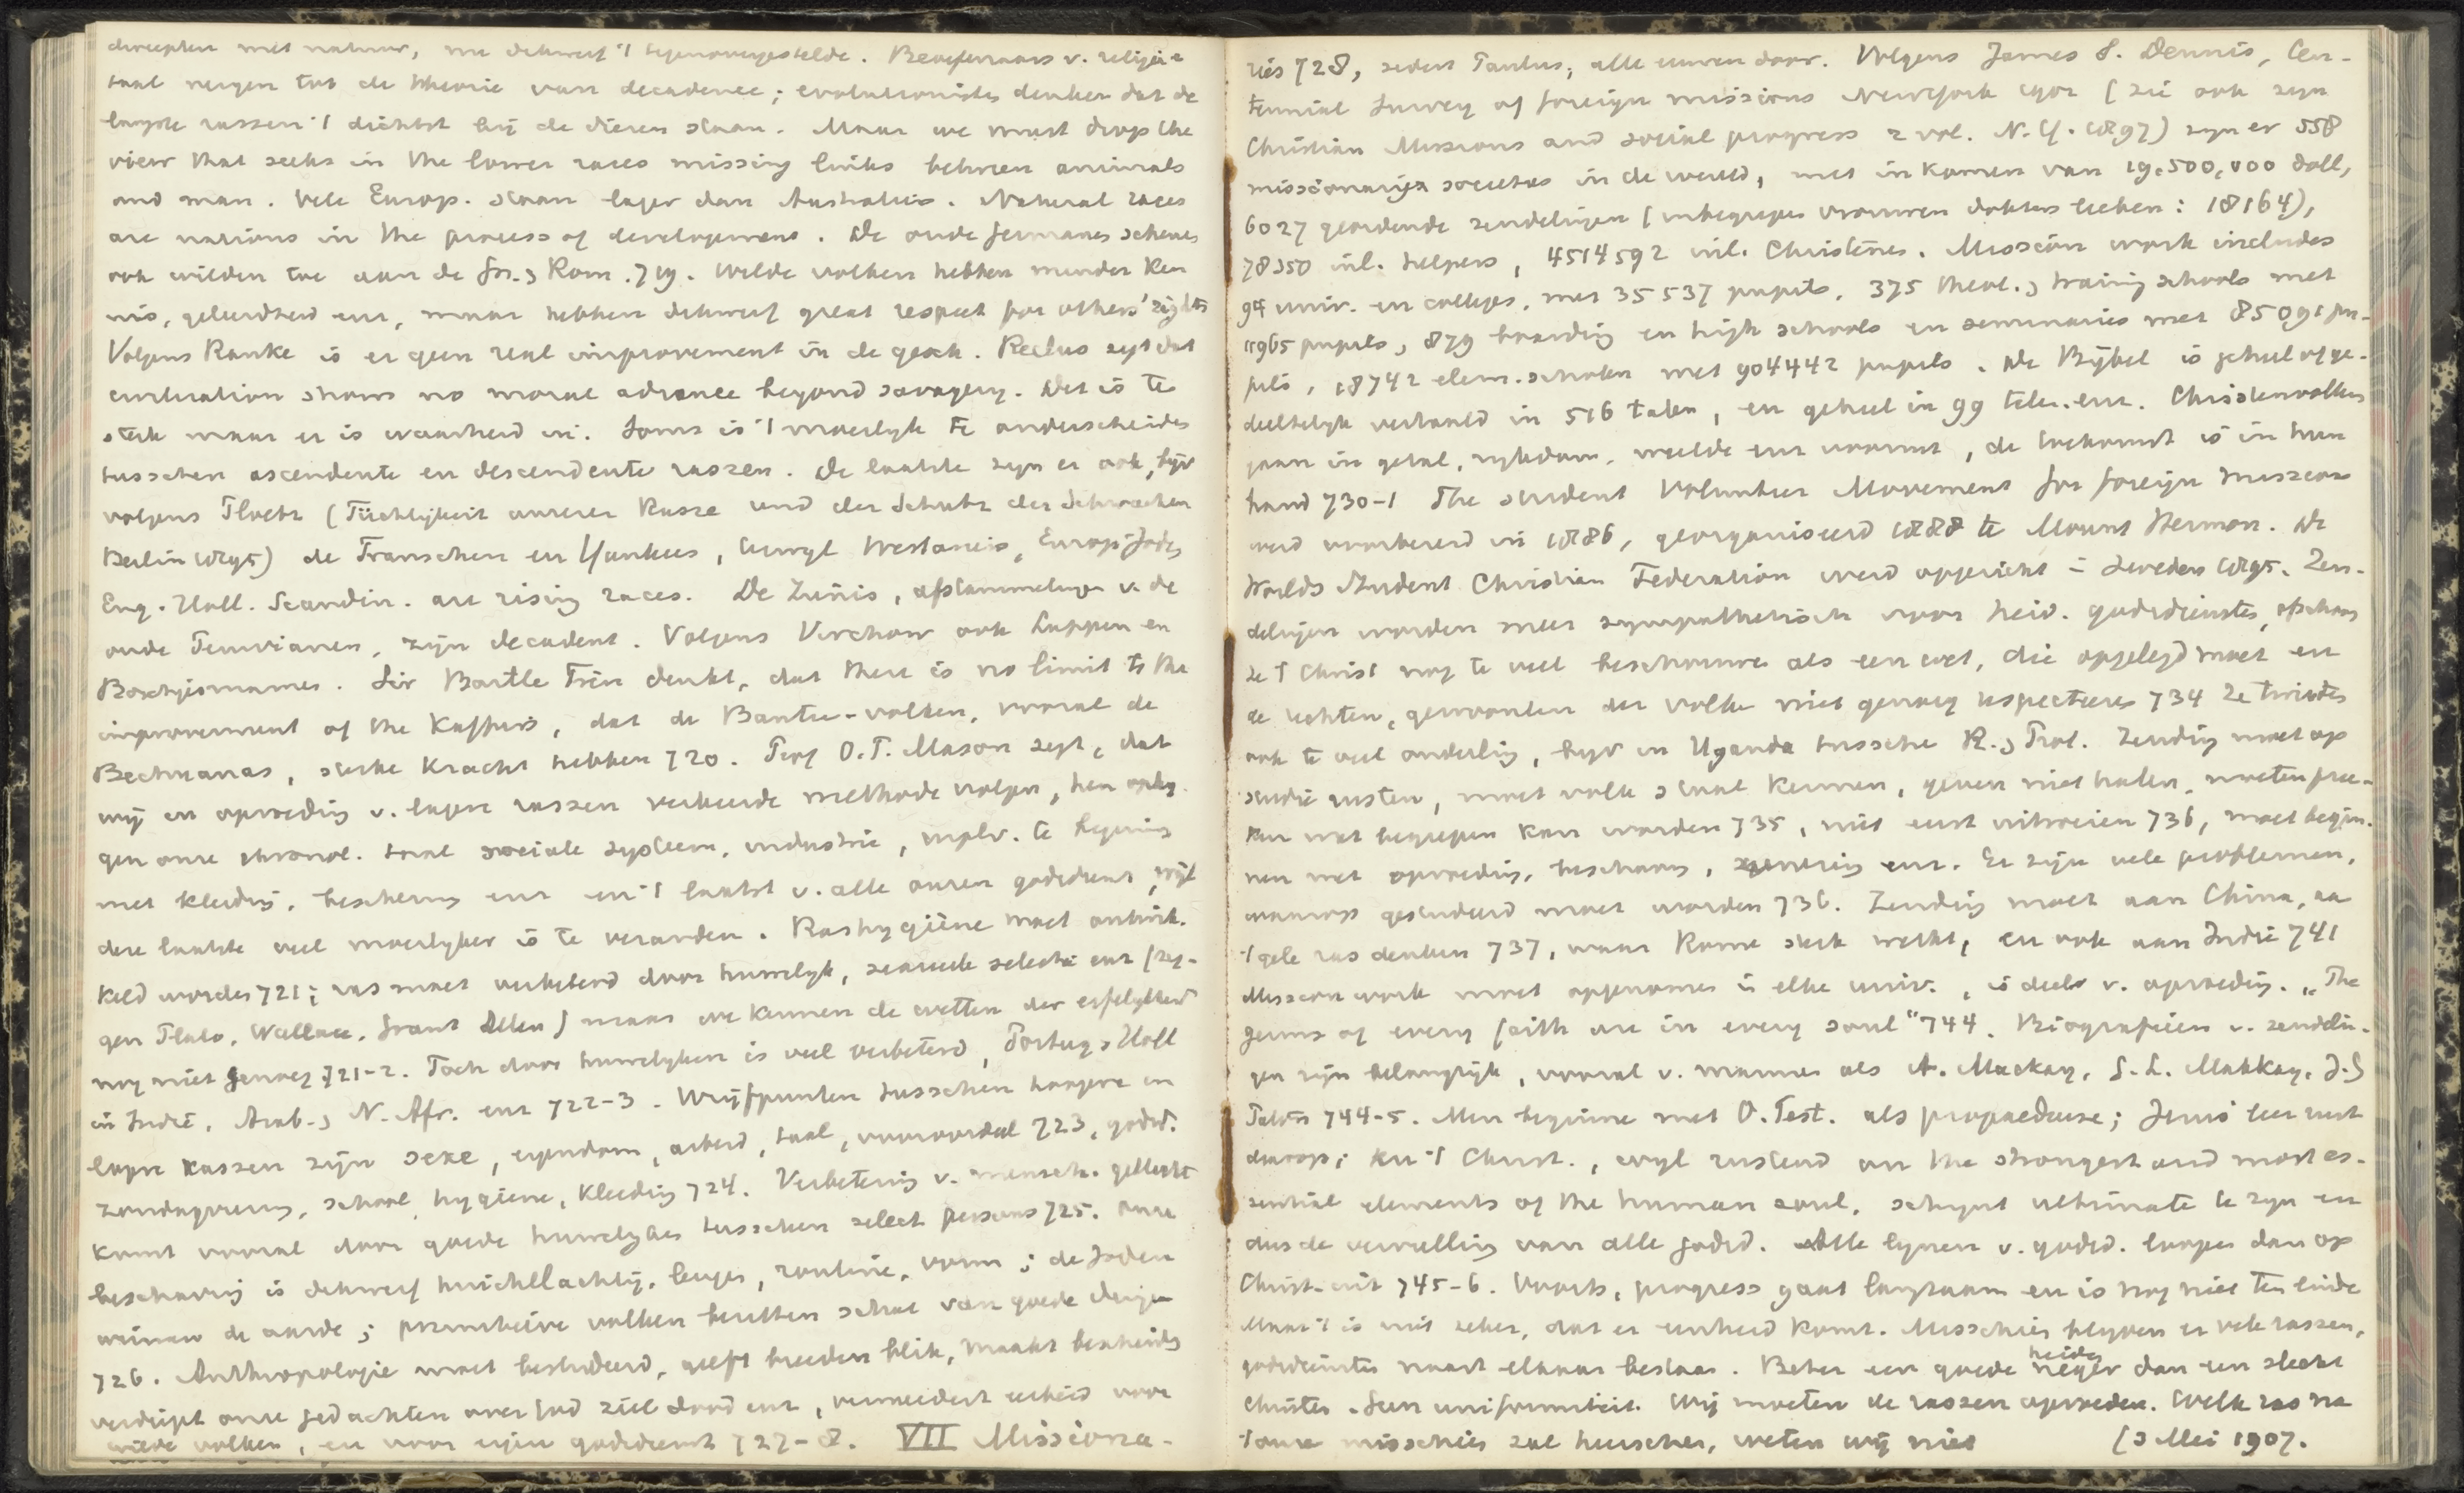 directen met natuur, nu dikwerf 't tegenovergestelde. Beoefenaars v. religie &
taal neigen tot de theorie van decadence; evolutionisten denken dat de
laagste rassen 't dichtst bij de dieren staan. Maar we must drop the
view that seeks in the lower races missing links between animals
and man. Vele Europ. staan lager dan Australiërs. Natural races
are nations in the process of development. De oude Germanen schenen
ook wilden toe aan de Gr. & Rom. 719. Wilde volken hebben minder ken
nis, geleerdheid enz, maar hebben dikwerf great respect for others' rights
Volgens Ranke is er geen real improvement in de gesch. Reclus zegt dat
civilization shows no moral advance beyond savagery. Det is te
sterk maar er is waarheid in. Soms is 't moeilyk te onderscheiden
tusschen ascendente en descendente rassen. De laatste zyn er ook, bijv
volgens Ploetz (Tüchtigkeit unsrer Rasse und der Schutz der Schwachen
Berlin 1895) de Franschen en Yankees, terwyl Westariërs, Europ. Joden
Eng. Holl. Scandin. are rising races. De Zuñis, afstammelingen v. de
oude Peruvianen, zijn decadent. Volgens Virchow ook Lappen en
Boschjesmannen. Sir Bartle Frere denkt, dat there is no limit to the
improvement of the Kaffirs, dat de Bantu-volken, vooral de
Bechuanas, sterke kracht hebben 720. Prof O.T. Mason zegt, dat
wij en opvoeding v. lagere rassen verkeerde methode volgen, hen opleg-
gen onze chronol. taal sociale systeem, industrie, inplv. te beginnen
met kleeding, bescherming enz en 't laatst v. alle onzen godsdienst, wijl
deze laatste veel moeilyker is te veranderen. Rashygiëne moet ontwik-
keld worden 721; ras moet verbeterd door huwelyk, sexueele selectie enz (zeg-
gen Plato, Wallace, Grant Allen) maar we kennen de wetten der erfelykheid
nog niet genoeg 721-2. Toch door huwelyken is veel verbeterd, Portug. & Holl
in Indië, Arab. & N. Afr. enz 722-3. Wrijfpunten tusschen hoogere en
lagere rassen zijn sexe, eigendom, arbeid, taal, vooroordeel 723, godsd.
zondagviering, school, hygiëne, kleeding 724. Verbetering v. mensch. geslacht
komt vooral door goede huwelyken tusschen select persons 725. Onze
beschaving is dikwerf huichelachtig, leugen, routine, vorm; de Joden
winnen de aarde; primitieve volken bezitten schat van goede dingen
726. Anthropologie moet bestudeerd, geeft breeden blik, maakt bescheiden
verdiept onze gedachten over God ziel dood enz, vermeerdert eerbied voor
andere volken, en voor eigen godsdienst 727-8. VII Missiona-
ries 728, sedert Paulus, alle eeuwen door. Volgens James S. Dennis, Cen-
tennial Survey of foreign missions NewYork 1902 (zie ook zyn
Christian Missions and social progress 2 vol. N.Y. 1897) zyn er 558
missionary societies in de wereld, met inkomen van 19.500,000 doll,
6027 geordende zendelingen (inbegrepen vrouwen dokters leeken: 18164),
78350 inl. helpers, 4514592 inl. Christenen. Mission work includes
94 univ. en colleges, met 35537 pupils, 375 theol. & training schools met
11965 pupils, 879 boarding en high schools en seminaries met 85091 pu-
pils, 18742 elem. scholen met 904442 pupils. De Bijbel is geheel of ge-
deeltelyk vertaald in 516 talen, en geheel in 99 talen. enz. Christenvolken
gaan in getal, rykdom, weelde enz vooruit, de toekomst is in hun
hand 730-1 The student Volunteer Movement for foreign missions
werd voorbereid in 1886, georganiseerd 1888 te Mount Hermon. De
Worlds Student Christian Federation werd opgericht in Zweden 1895. Zen-
delingen worden meer sympathetisch voor heid. godsdiensten, ofschoon
ze 't Christ nog te veel beschouwen als een wet, die opgelegd moet en
de rechten, gewoonten der volken niet genoeg respecteeren 734 Ze twisten
ook te veel onderling, bijv in Uganda tusschen R. & Prot. Zending moet op
studie rusten, moet volk & taal kennen, geven niet halen, moeten pree-
ken wat begrepen kan worden 735, niet eerst uitroeien 736, moet begin-
nen met opvoeding, beschaving, genezing enz. Er zijn vele problemen,
waarop gestudeerd moet worden 736. Zending moet aan China, aan
't gele ras denken 737, waar Rome sterk werkt, en ook aan Indië 741
Mission work moet opgenomen in elke univ., is deel v. opvoeding. „The
germs of every faith are in every soul" 744. Biografieën v. zendelin-
gen zijn belangrijk, vooral v. mannen als A. Mackay, G.L. Makkay, J.G
Paton 744-5. Men beginne met O. Test. als propaedeuse; Jezus' leer rust
daarop; en 't Christ., wyl rustend on the strongest and most es-
sential elements of the human soul, schynt ultimate te zyn en
dus de vervulling van alle godsd. Alle lynen v. godsd. loopen dan op
Christ. uit 745-6. Voorts, progress gaat langzaam en is nog niet ten einde
Maar 't is niet zeker, dat er eenheid komt. Misschien blyven er vele rassen,
godsdiensten naast elkaar bestaan. Beter een goede heiden neger dan een slecht
Christen. Geen uniformiteit. Wij moeten de rassen opvoeden. Welk ras na
't onze misschien zal heerschen, weten wij niet (3 Mei 1907.